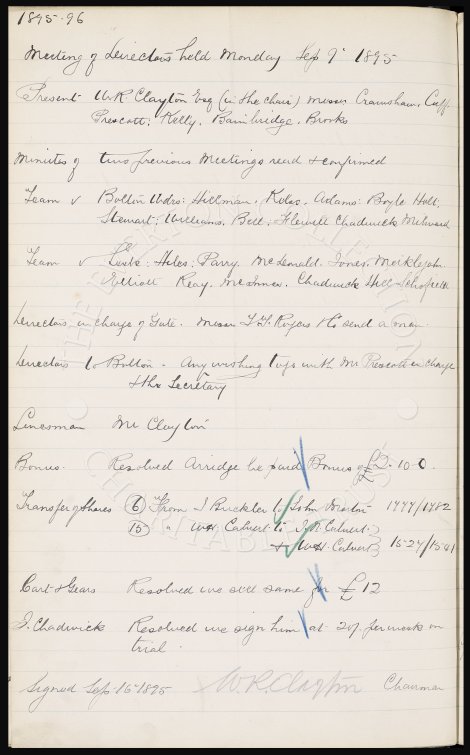 1895-96
Meeting of Directors held Monday Sep 9th 1895
Present W.R. Clayton Esq (in the chair). Messrs Crawshaw, Cuff
Prescott, Kelly, Bainbridge, Brooks
Minutes of two previous Meetings read & confirmed
Team v Bolton Wdrs: Hillman. Kelso. Adams: Boyle Holt
Stewart: Williams. Bell: Flewitt Chadwick Milward
Team v Hiles: Parry. McDonald. Jones. Meiklejohn
Elliott Reay. McInnes. Chadwick Hill Schofield
Directors in charge of Gate. Messrs Rogers to send a man.
Directors to Bolton. Any wishing to go with Mr Prescott in charge
& the Secretary
Linesman Mr Clayton
Bonus. Resolved Arridge be paid Bonus of £ 10-0.
Transfer of Shares (6) From J Buckler to John Martin 1777/1782
(15) " W.H. Calvert to Calvert
& W.H. Calvert 1527/1541
Cart & Gears Resolved we sell same for £12
J. Chadwick Resolved we sign him at 20/- per week on
trial.
Signed Sep. 16 1895 W.R. Clayton Chairman
THE EVERTON
CHARITABLE TRUST